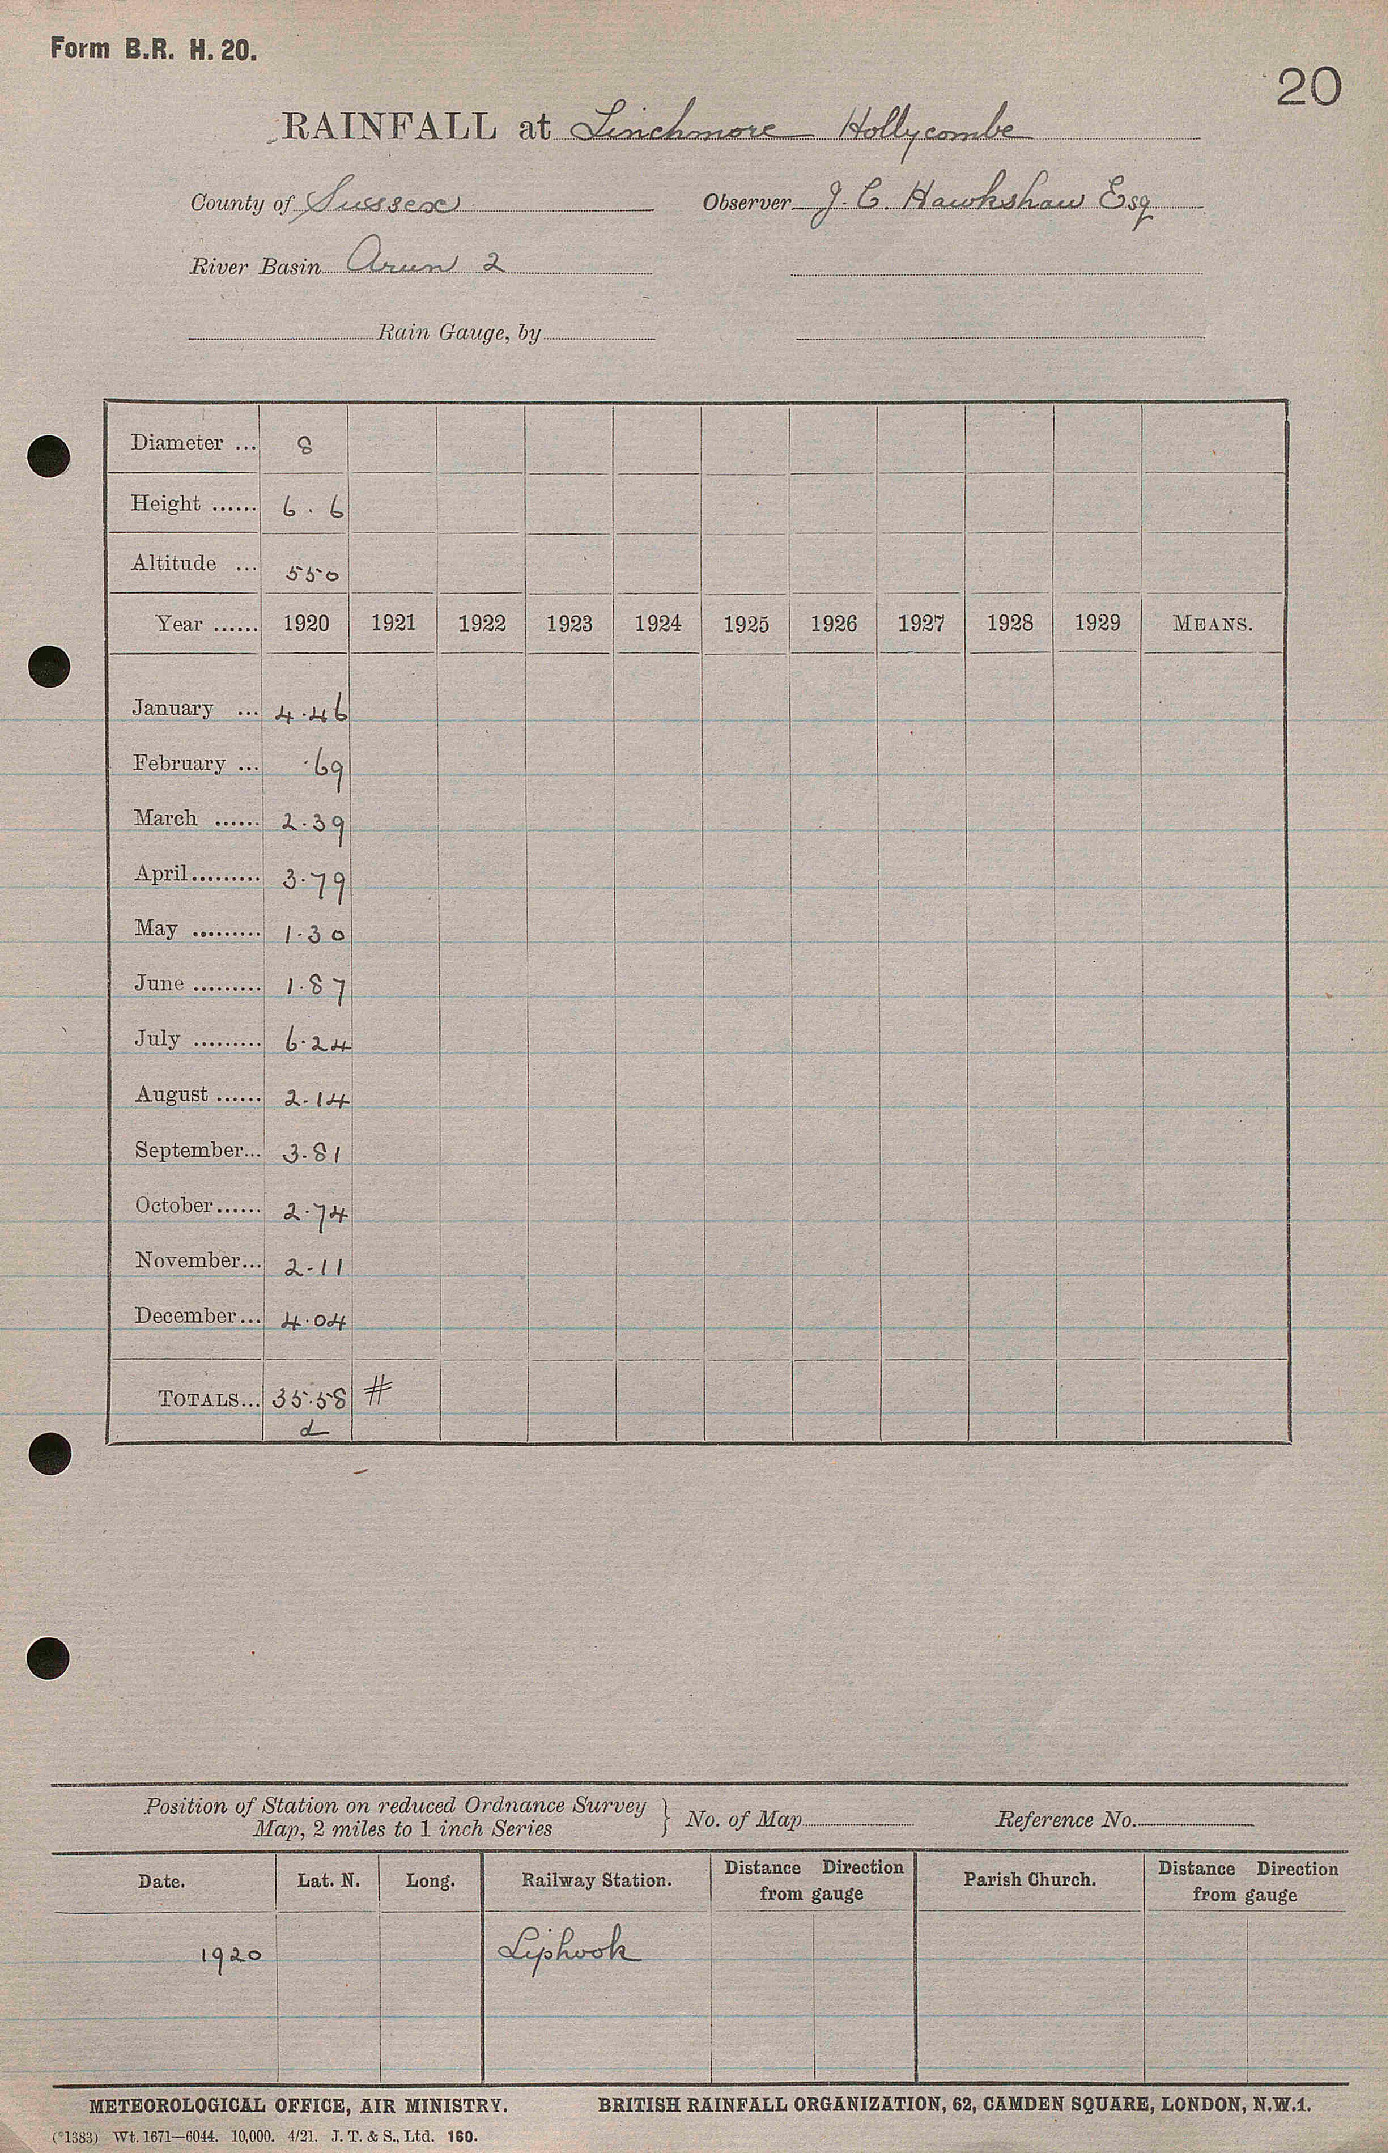 Form B.R. H. 20.
20
RAINFALL at Linchmore Hollycombe
County of Sussex Observer J. C. Hawkshaw Esq
River Basin Arun 2
Rain Gauge, by
Diameter ... 8
Height ...... 6 . 6
Altitude ... 550
Year ...... 1920 1921 1922 1923 1924 1925 1926 1927 1928 1929 MEANS.
January ... 4.46
February ... .69
March ...... 2.39
April ......... 3.79
May ......... 1.30
June ......... 1.87
July ......... 6.24
August ...... 2.14
September... 3.81
October ...... 2.74
November... 2.11
December... 4.04
TOTALS... 35.58 #
d
Position of Station on reduced Ordnance Survey
Map, 2 miles to 1 inch Series } No. of Map Reference No.
Date. Lat. N. Long. Railway Station. Distance Direction from gauge Parish Church. Distance Direction from gauge
1920 Liphook
METEOROLOGICAL OFFICE, AIR MINISTRY. BRITISH RAINFALL ORGANIZATION, 62, CAMDEN SQUARE, LONDON, N.W.1.
(*1383) Wt. 1671—6044. 10,000. 4/21. J. T. & S., Ltd. 160.